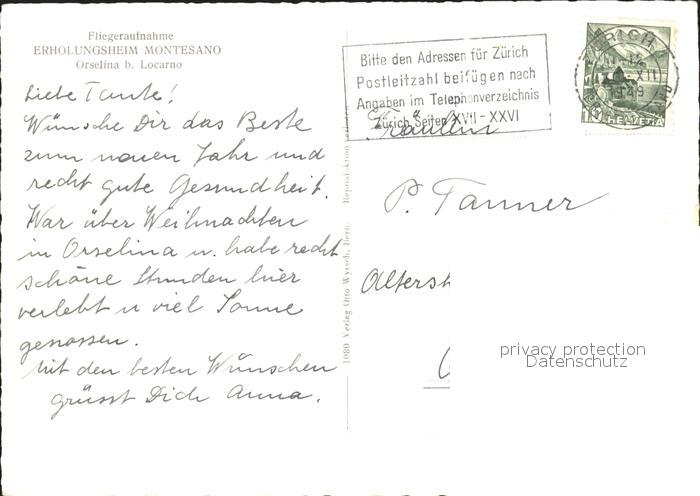 Fliegeraufnahme
ERHOLUNGSHEIM MONTESANO
Orselina b. Locarno
Liebe Tante!
Wünsche Dir das Beste
zum neuen Jahr und
recht gute Gesundheit.
War über Weihnachten
in Orselina u. habe recht
schöne Stunden hier
verlebt u viel Sonne
genossen.
Mit den besten Wünschen
grüsst Dich Anna.
1080 Verlag Otto Wyrsch, Bern. Reproduktion verboten
Bitte den Adressen für Zürich
Postleitzahl beifügen nach
Angaben im Telephonverzeichnis
Zürich Seiten XVII - XXVI
HELVETIA
Fräulein
P. Tanner
Altersh
privacy protection
Datenschutz